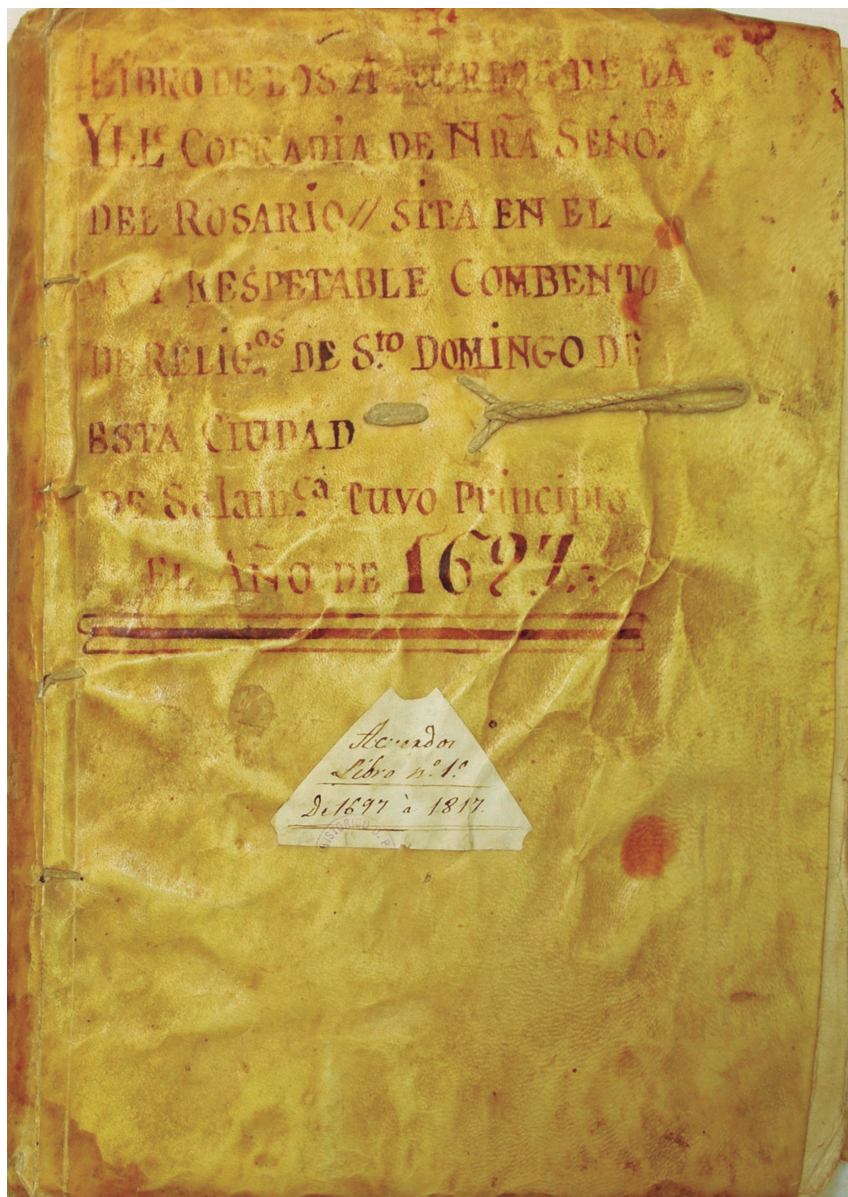 LIBRO DE LOS ACUERDOS DE LA
YLL COFRADIA DE NRÃ SEÑO.RA
DEL ROSARIO // SITA EN EL
MVY RESPETABLE COMBENTO
DE RELIG.os DE S.to DOMINGO DE
ESTA CIUDAD
DE Salam.ca tuvo Principio
EL AÑO DE 1697.
Acuerdos
Libro nº. 1º.
De 1697 à 1817.